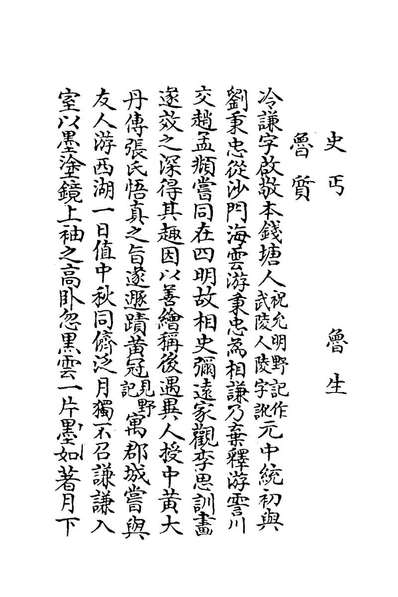 史丐　魯生
魯質
冷謙字啟敬本錢塘人祝允明野記作武陵人陵字訛元中統初與
劉秉忠從沙門海雲游秉忠為相謙乃棄釋游霅川
交趙孟頫嘗同在四明故相史彌遠家觀李思訓畫
遂效之深得其趣因以善繪稱後遇異人授中黃大
丹傳張氏悟真之旨遂遯蹟黃冠見野記寓郡城嘗與
友人游西湖一日值中秋同儕泛月獨不召謙謙入
室以墨塗鏡上袖之高卧忽黑雲一片墨如著月下